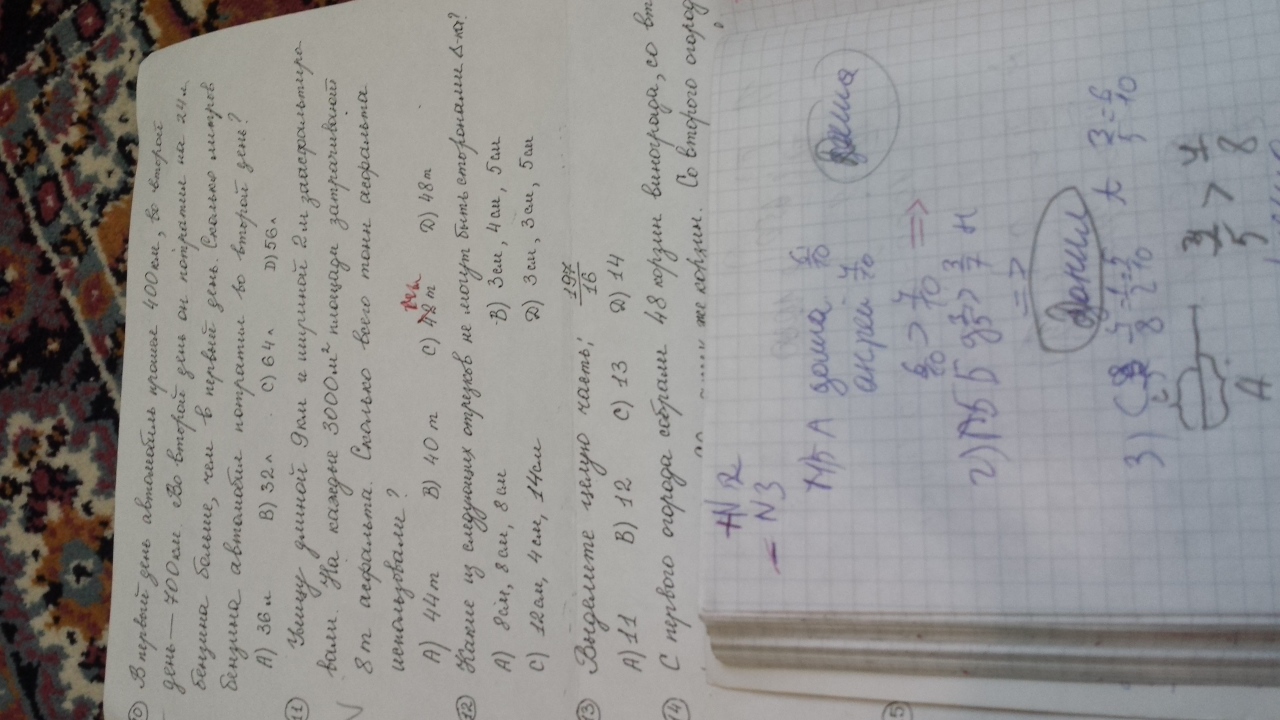 10 В первый день автомобиль проехал 400 км, во второй
день — 700 км. Во второй день он потратил на 24 л
бензина больше, чем в первый день. Сколько литров
бензина автомобиль потратил во второй день?
A) 36 л B) 32 л C) 64 л D) 56 л
11 Улицу длиной 9 км и шириной 2 м заасфальтиро
вали. На каждые 3000 м² площади затрачивали
8 т асфальта. Сколько всего тонн асфальта
использовали?
A) 44 т B) 40 т C) 48 т D) 48 т
12 Какие из следующих отрезков не могут быть сторонами Δ-ка?
A) 8 см, 8 см, 8 см B) 3 см, 4 см, 5 см
C) 12 см, 4 см, 14 см D) 3 см, 3 см, 5 см
13 Выделите целую часть: 197/16
A) 11 B) 12 C) 13 D) 14
14 С первого огорода собрали 48 корзин винограда, со вт
же корзин. Со второго огород
15
N2
N3
А даша 6/10 Даша
андрей 7/10
> 7/10 =>
2) > 3/7 н
=>
Данил
3) 5/8 1/2 = 5/10 t 3/5 = 6/10
A 3/5 > 4/8